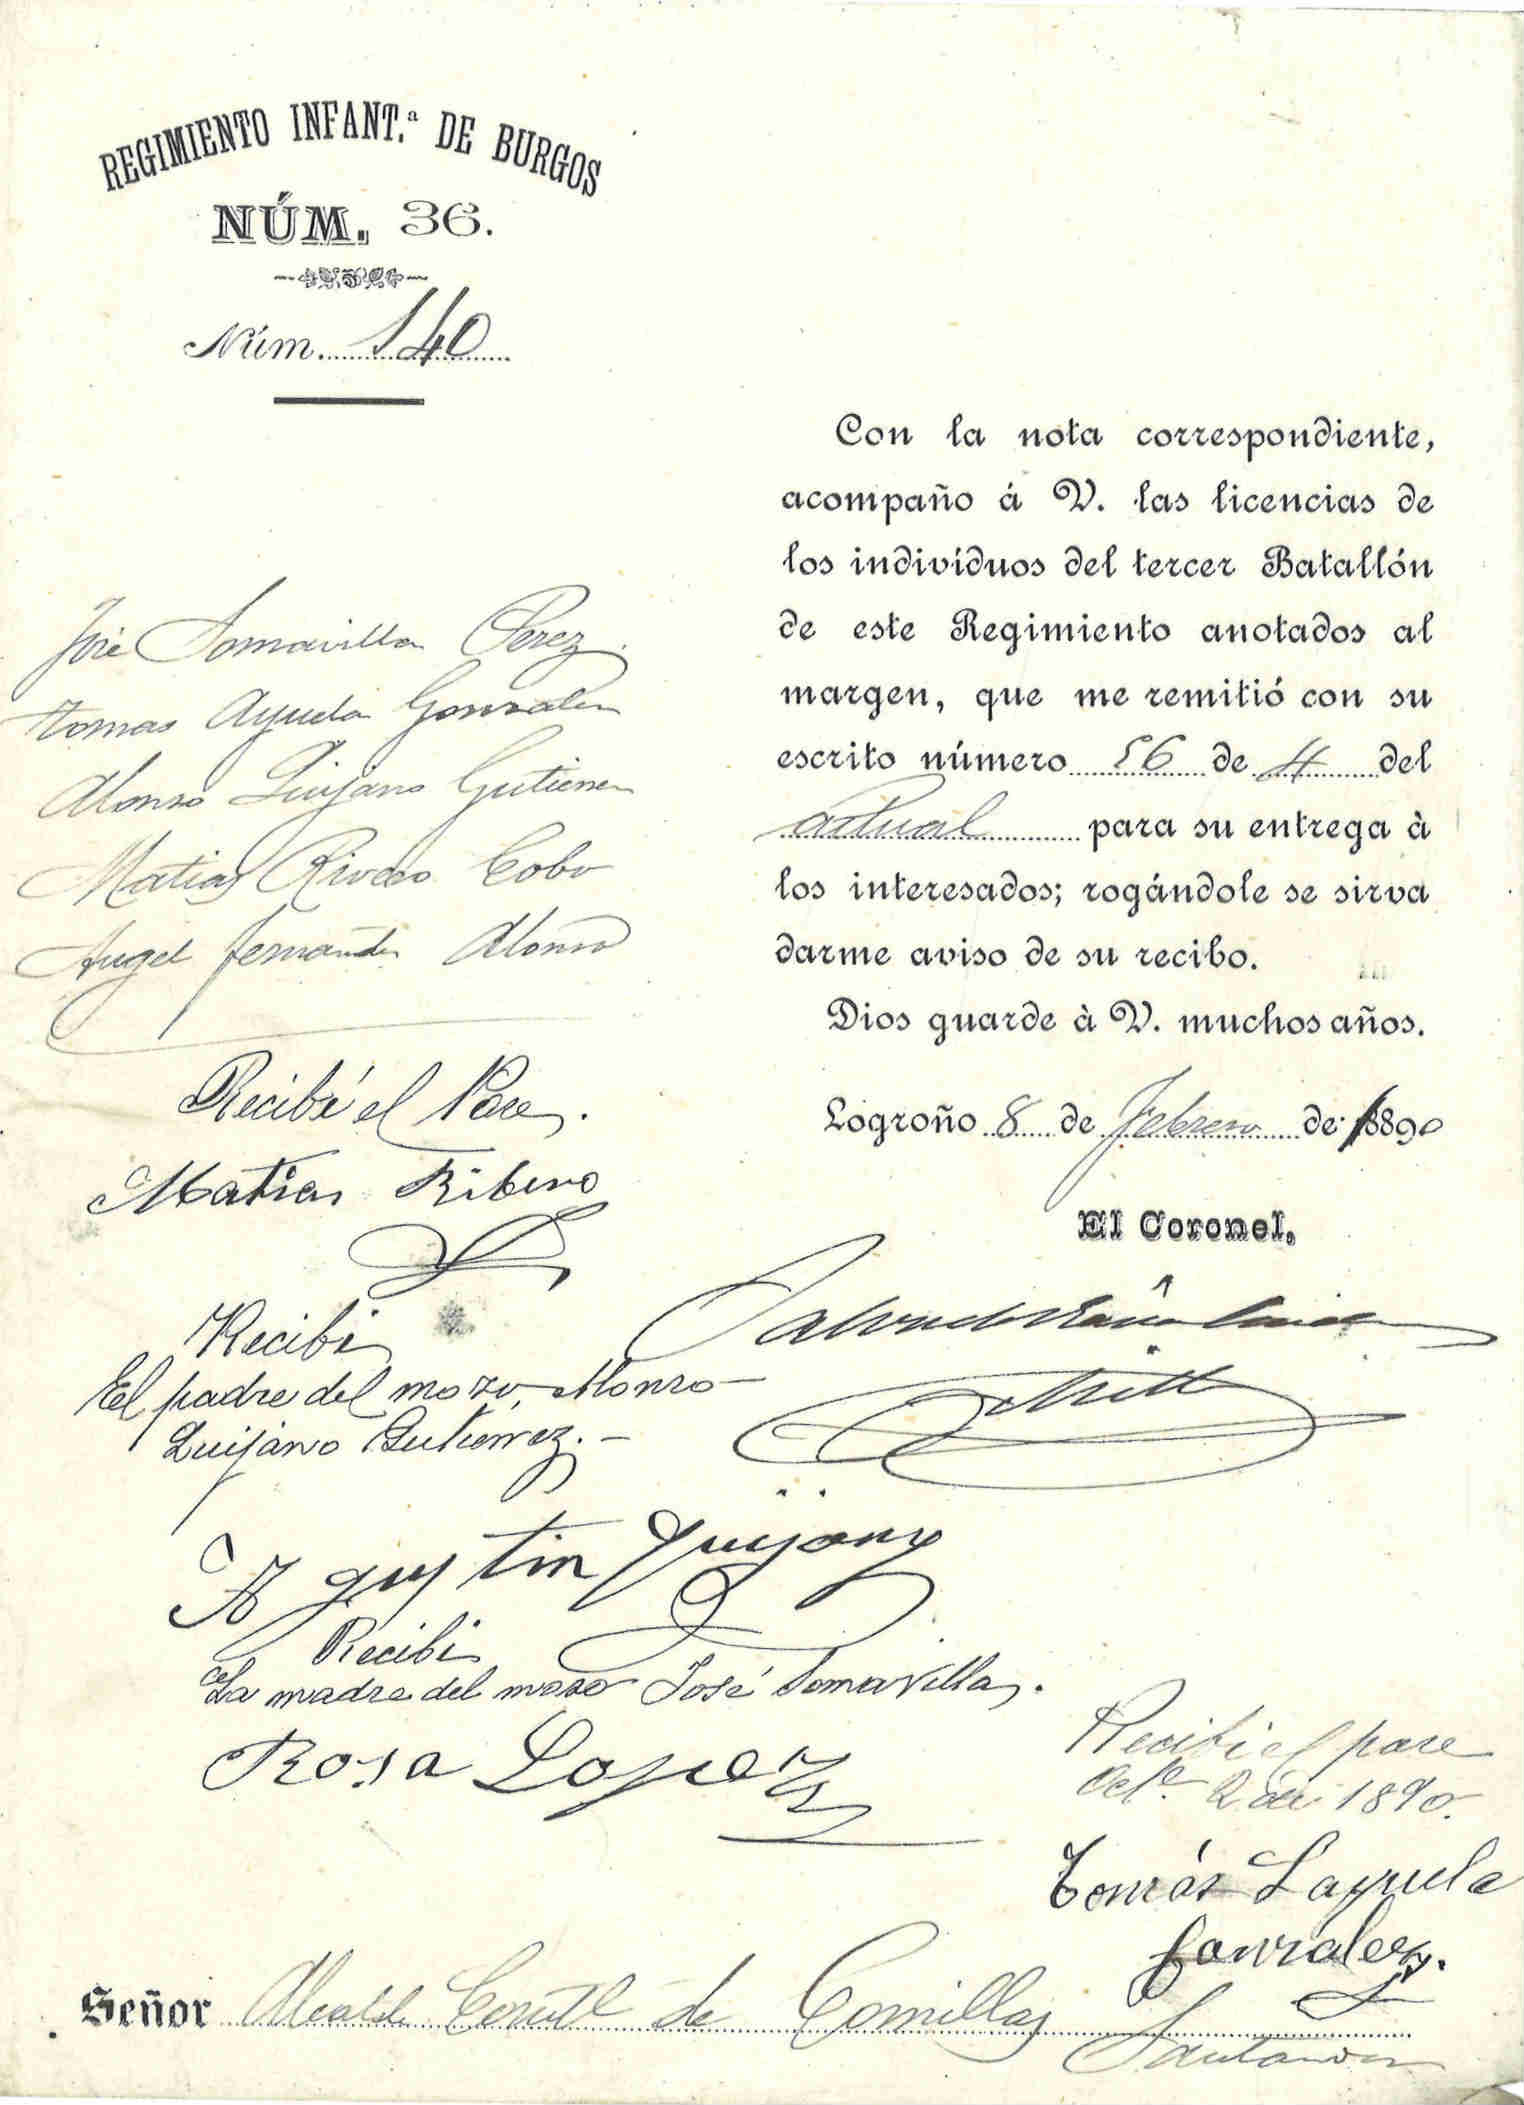 REGIMIENTO INFANT.ª DE BURGOS
NÚM. 36.
Núm. 140
Con la nota correspondiente,
acompaño á V. las licencias de
los indivíduos del tercer Batallón
de este Regimiento anotados al
margen, que me remitió con su
escrito número 56 de 4 del
actual para su entrega à
los interesados; rogándole se sirva
darme aviso de su recibo.
Dios guarde à V. muchos años.
Logroño 8 de Febrero de 1890
El Coronel,
José Somavilla Perez.
Tomas Ayuela Gonzalez
Alonso Quijano Gutierrez
Matias Rivero Cobo
Angel Fernandez Alonso
Recibé el Pase.
Matias Ribero
Recibi
El padre del mozo Alonso
Quijano Gutierrez.-
Agustin Quijano
Recibi
La madre del mozo José Somavilla.
Rosa Lopez
Recibi el pase
Oct.e 2 de 1890.
Tomás Layuela
Gonzalez.
Señor Alcalde Constl de Comillas
Santander